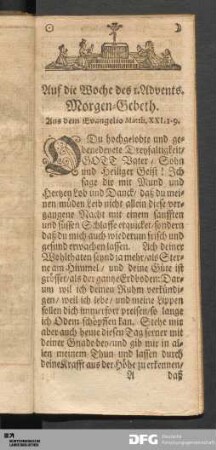 Auf die Woche des 1. Advents.
Morgen-Gebeth.
Aus dem Evangelio Matth. XXI. 1-9.
O Du hochgelobte und ge-
benedeyete Dreyfaltigkeit/
GOTT Vater/ Sohn
und Heiliger Geist! Ich
sage dir mit Mund und
Hertzen Lob und Danck/ daß du mei-
nen müden Leib nicht allein diese ver-
gangene Nacht mit einem sanfften
und süssen Schlaffe erquicket/ sondern
daß du mich auch wiederum frisch und
gesund erwachen lassen. Ach deiner
Wohlthaten seynd ja mehr/ als Ster-
ne am Himmel/ und deine Güte ist
grösser/ als der gantze Erdboden: Dar-
um wil ich deinen Ruhm verkündi-
gen/ weil ich lebe/ und meine Lippen
sollen dich immerfort preisen/ so lange
ich Odem schöpffen kan. Stehe mir
aber auch heute diesen Tag ferner mit
deiner Gnade bey/ und gib mir in al-
len meinem Thun und lassen durch
deine Krafft aus der Höhe zu erkennen/
A daß
DFG